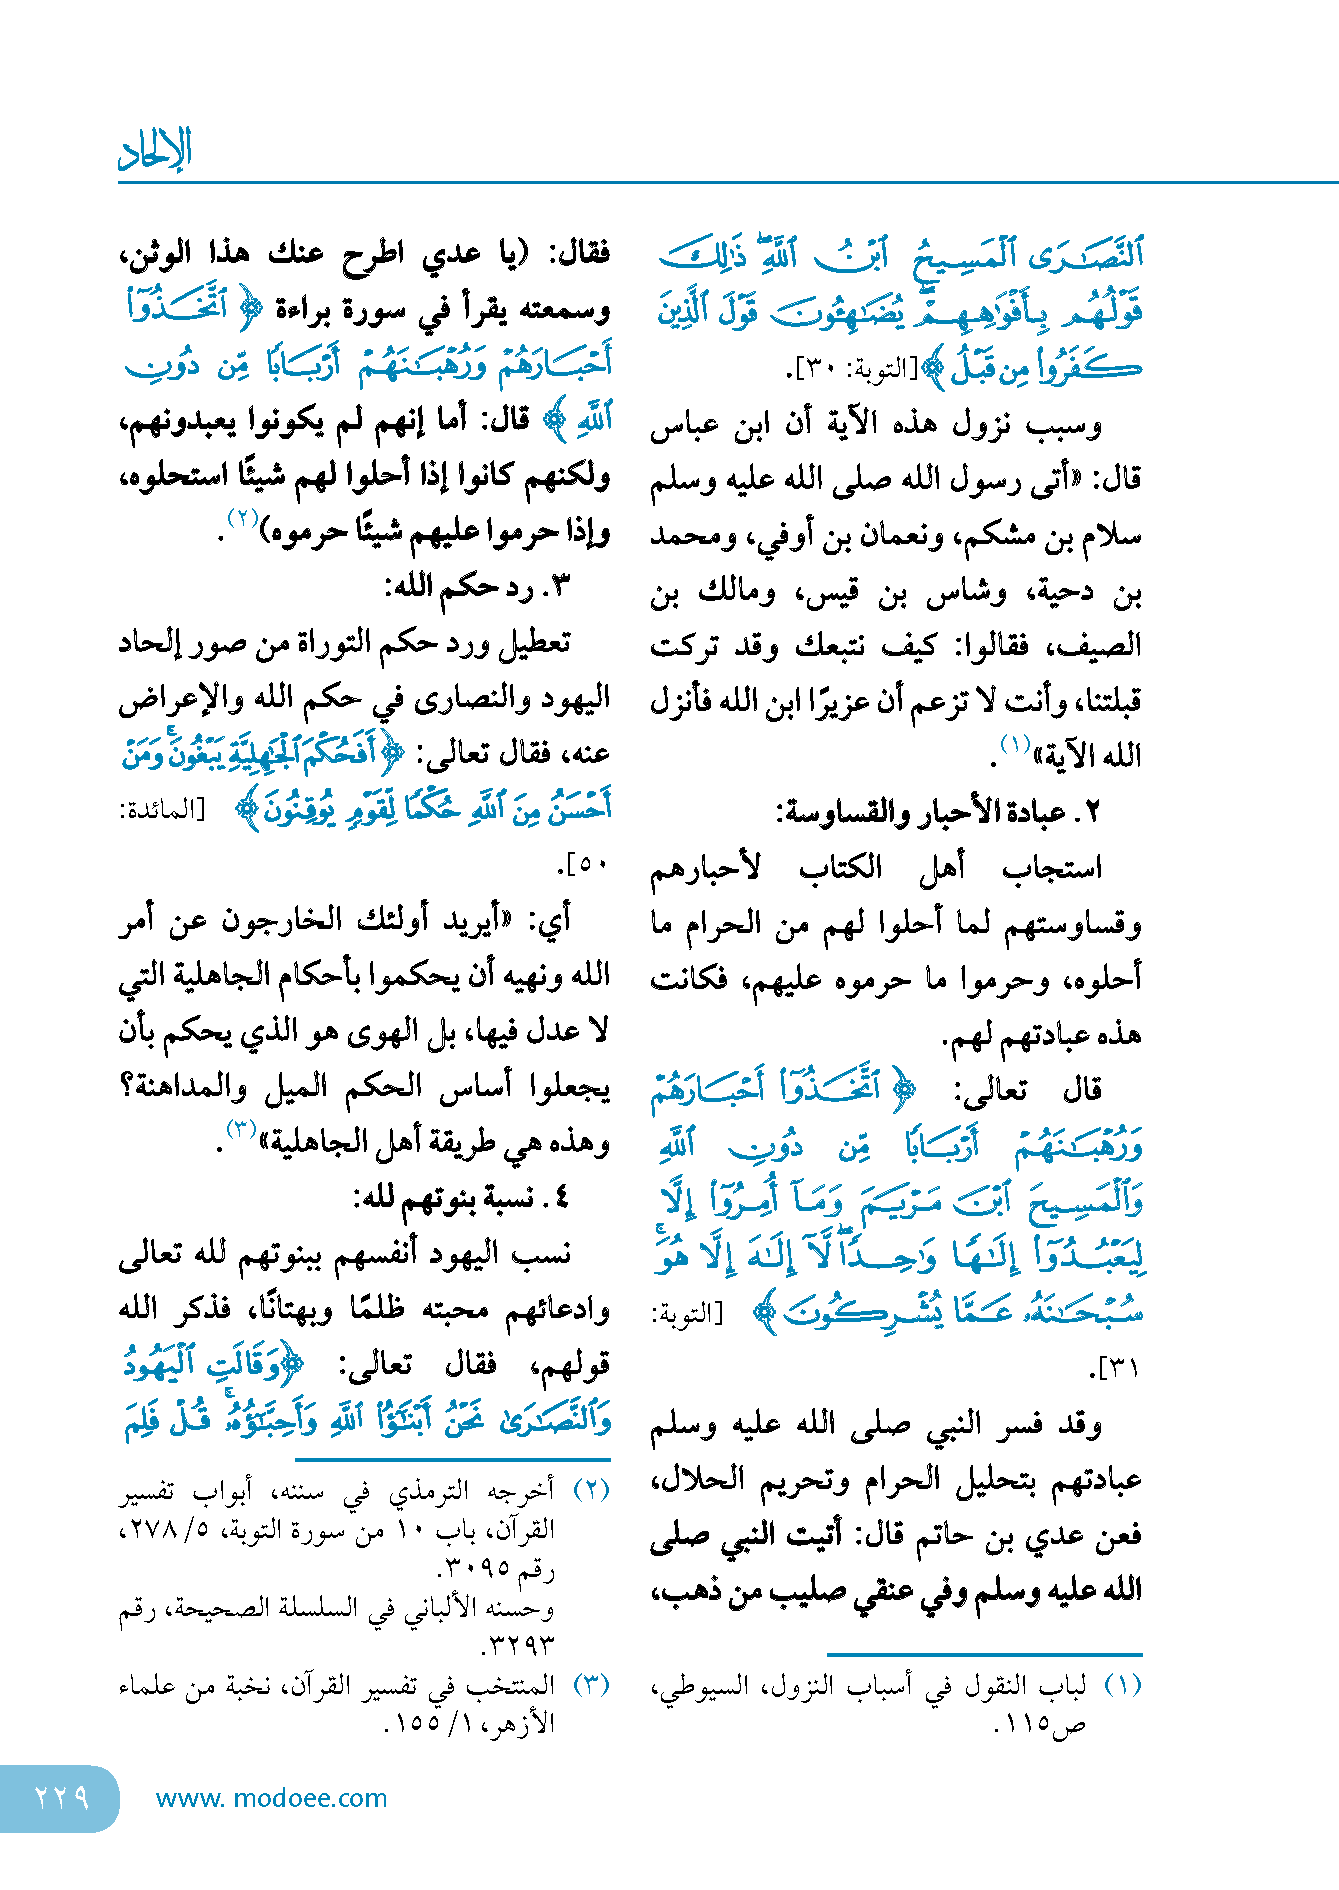 الإلحاد
ٱلنَّصَـٰرَى ٱلْمَسِيحُ ٱبْنُ ٱللَّهِ ۖ ذَٰلِكَ
قَوْلُهُم بِأَفْوَٰهِهِمْ ۖ يُضَـٰهِـُٔونَ قَوْلَ ٱلَّذِينَ
كَفَرُوا۟ مِن قَبْلُ ﴾ [التوبة: ٣٠].
وسبب نزول هذه الآية أن ابن عباس
قال: «أتى رسول الله صلى الله عليه وسلم
سلام بن مشكم، ونعمان بن أوفي، ومحمد
بن دحية، وشاس بن قيس، ومالك بن
الصيف، فقالوا: كيف نتبعك وقد تركت
قبلتنا، وأنت لا تزعم أن عزيرًا ابن الله فأنزل
الله الآية»(١).
٢. عبادة الأحبار والقساوسة:
استجاب أهل الكتاب لأحبارهم
وقساوستهم لما أحلوا لهم من الحرام ما
أحلوه، وحرموا ما حرموه عليهم، فكانت
هذه عبادتهم لهم.
قال تعالى: ﴿ ٱتَّخَذُوٓا۟ أَحْبَارَهُمْ
وَرُهْبَـٰنَهُمْ أَرْبَابًا مِّن دُونِ ٱللَّهِ
وَٱلْمَسِيحَ ٱبْنَ مَرْيَمَ وَمَآ أُمِرُوٓا۟ إِلَّا
لِيَعْبُدُوٓا۟ إِلَـٰهًا وَٰحِدًا ۖ لَّآ إِلَـٰهَ إِلَّا هُوَ ۚ
سُبْحَـٰنَهُۥ عَمَّا يُشْرِكُونَ ﴾ [التوبة:
٣١].
وقد فسر النبي صلى الله عليه وسلم
عبادتهم بتحليل الحرام وتحريم الحلال،
فعن عدي بن حاتم قال: أتيت النبي صلى
الله عليه وسلم وفي عنقي صليب من ذهب،
(١) لباب النقول في أسباب النزول، السيوطي،
ص١١٥.
فقال: (يا عدي اطرح عنك هذا الوثن،
وسمعته يقرأ في سورة براءة ﴿ ٱتَّخَذُوٓا۟
أَحْبَارَهُمْ وَرُهْبَـٰنَهُمْ أَرْبَابًا مِّن دُونِ
ٱللَّهِ ﴾ قال: أما إنهم لم يكونوا يعبدونهم،
ولكنهم كانوا إذا أحلوا لهم شيئًا استحلوه،
وإذا حرموا عليهم شيئًا حرموه)(٢).
٣. رد حكم الله:
تعطيل ورد حكم التوراة من صور إلحاد
اليهود والنصارى في حكم الله والإعراض
عنه، فقال تعالى: ﴿أَفَحُكْمَ ٱلْجَـٰهِلِيَّةِ يَبْغُونَ ۚ وَمَنْ
أَحْسَنُ مِنَ ٱللَّهِ حُكْمًا لِّقَوْمٍ يُوقِنُونَ ﴾ [المائدة:
٥٠].
أي: «أيريد أولئك الخارجون عن أمر
الله ونهيه أن يحكموا بأحكام الجاهلية التي
لا عدل فيها، بل الهوى هو الذي يحكم بأن
يجعلوا أساس الحكم الميل والمداهنة؟
وهذه هي طريقة أهل الجاهلية»(٣).
٤. نسبة بنوتهم لله:
نسب اليهود أنفسهم ببنوتهم لله تعالى
وادعائهم محبته ظلمًا وبهتانًا، فذكر الله
قولهم، فقال تعالى: ﴿وَقَالَتِ ٱلْيَهُودُ
وَٱلنَّصَـٰرَىٰ نَحْنُ أَبْنَـٰٓؤُا۟ ٱللَّهِ وَأَحِبَّـٰٓؤُهُۥ ۚ قُلْ فَلِمَ
(٢) أخرجه الترمذي في سننه، أبواب تفسير
القرآن، باب ١٠ من سورة التوبة، ٥/ ٢٧٨،
رقم ٣٠٩٥.
وحسنه الألباني في السلسلة الصحيحة، رقم
٣٢٩٣.
(٣) المنتخب في تفسير القرآن، نخبة من علماء
الأزهر، ١/ ١٥٥.
www. modoee.com
٢٢٩